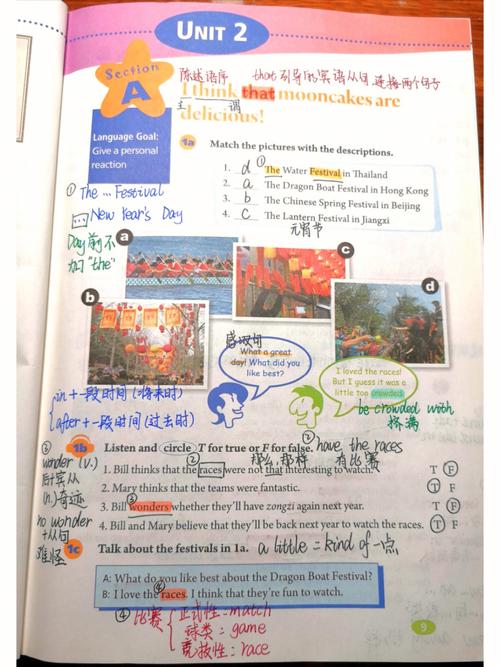 UNIT 2
Section
A
陈述语序 that引导的宾语从句,连接两个句子
I think that mooncakes are
主 谓
delicious!
Language Goal:
Give a personal
reaction
1a Match the pictures with the descriptions.
①
1. d The Water Festival in Thailand
2. a The Dragon Boat Festival in Hong Kong
3. b The Chinese Spring Festival in Beijing
4. c The Lantern Festival in Jiangxi
元宵节
① The ... Festival
New Year's Day
Day前不
加"the"
a
b
c
d
感叹句
What a great
day! What did you
like best?
I loved the races!
But I guess it was a
little too crowded.
be crowded with
挤满
in+一段时间(将来时)
after+一段时间(过去时)
1b Listen and circle T for true or F for false.
② have the races
那么,那样 有比赛
②
1. Bill thinks that the races were not that interesting to watch. T F
2. Mary thinks that the teams were fantastic. T F
③
3. Bill wonders whether they'll have zongzi again next year. T F
4. Bill and Mary believe that they'll be back next year to watch the races. T F
③
wonder (v.)
后+宾从
(n.)奇迹
no wonder
+从句
难怪
1c Talk about the festivals in 1a. a little = kind of 一点
A: What do you like best about the Dragon Boat Festival?
④
B: I love the races. I think that they're fun to watch.
④ 比赛
正式性=match
球类=game
竞技性=race
9